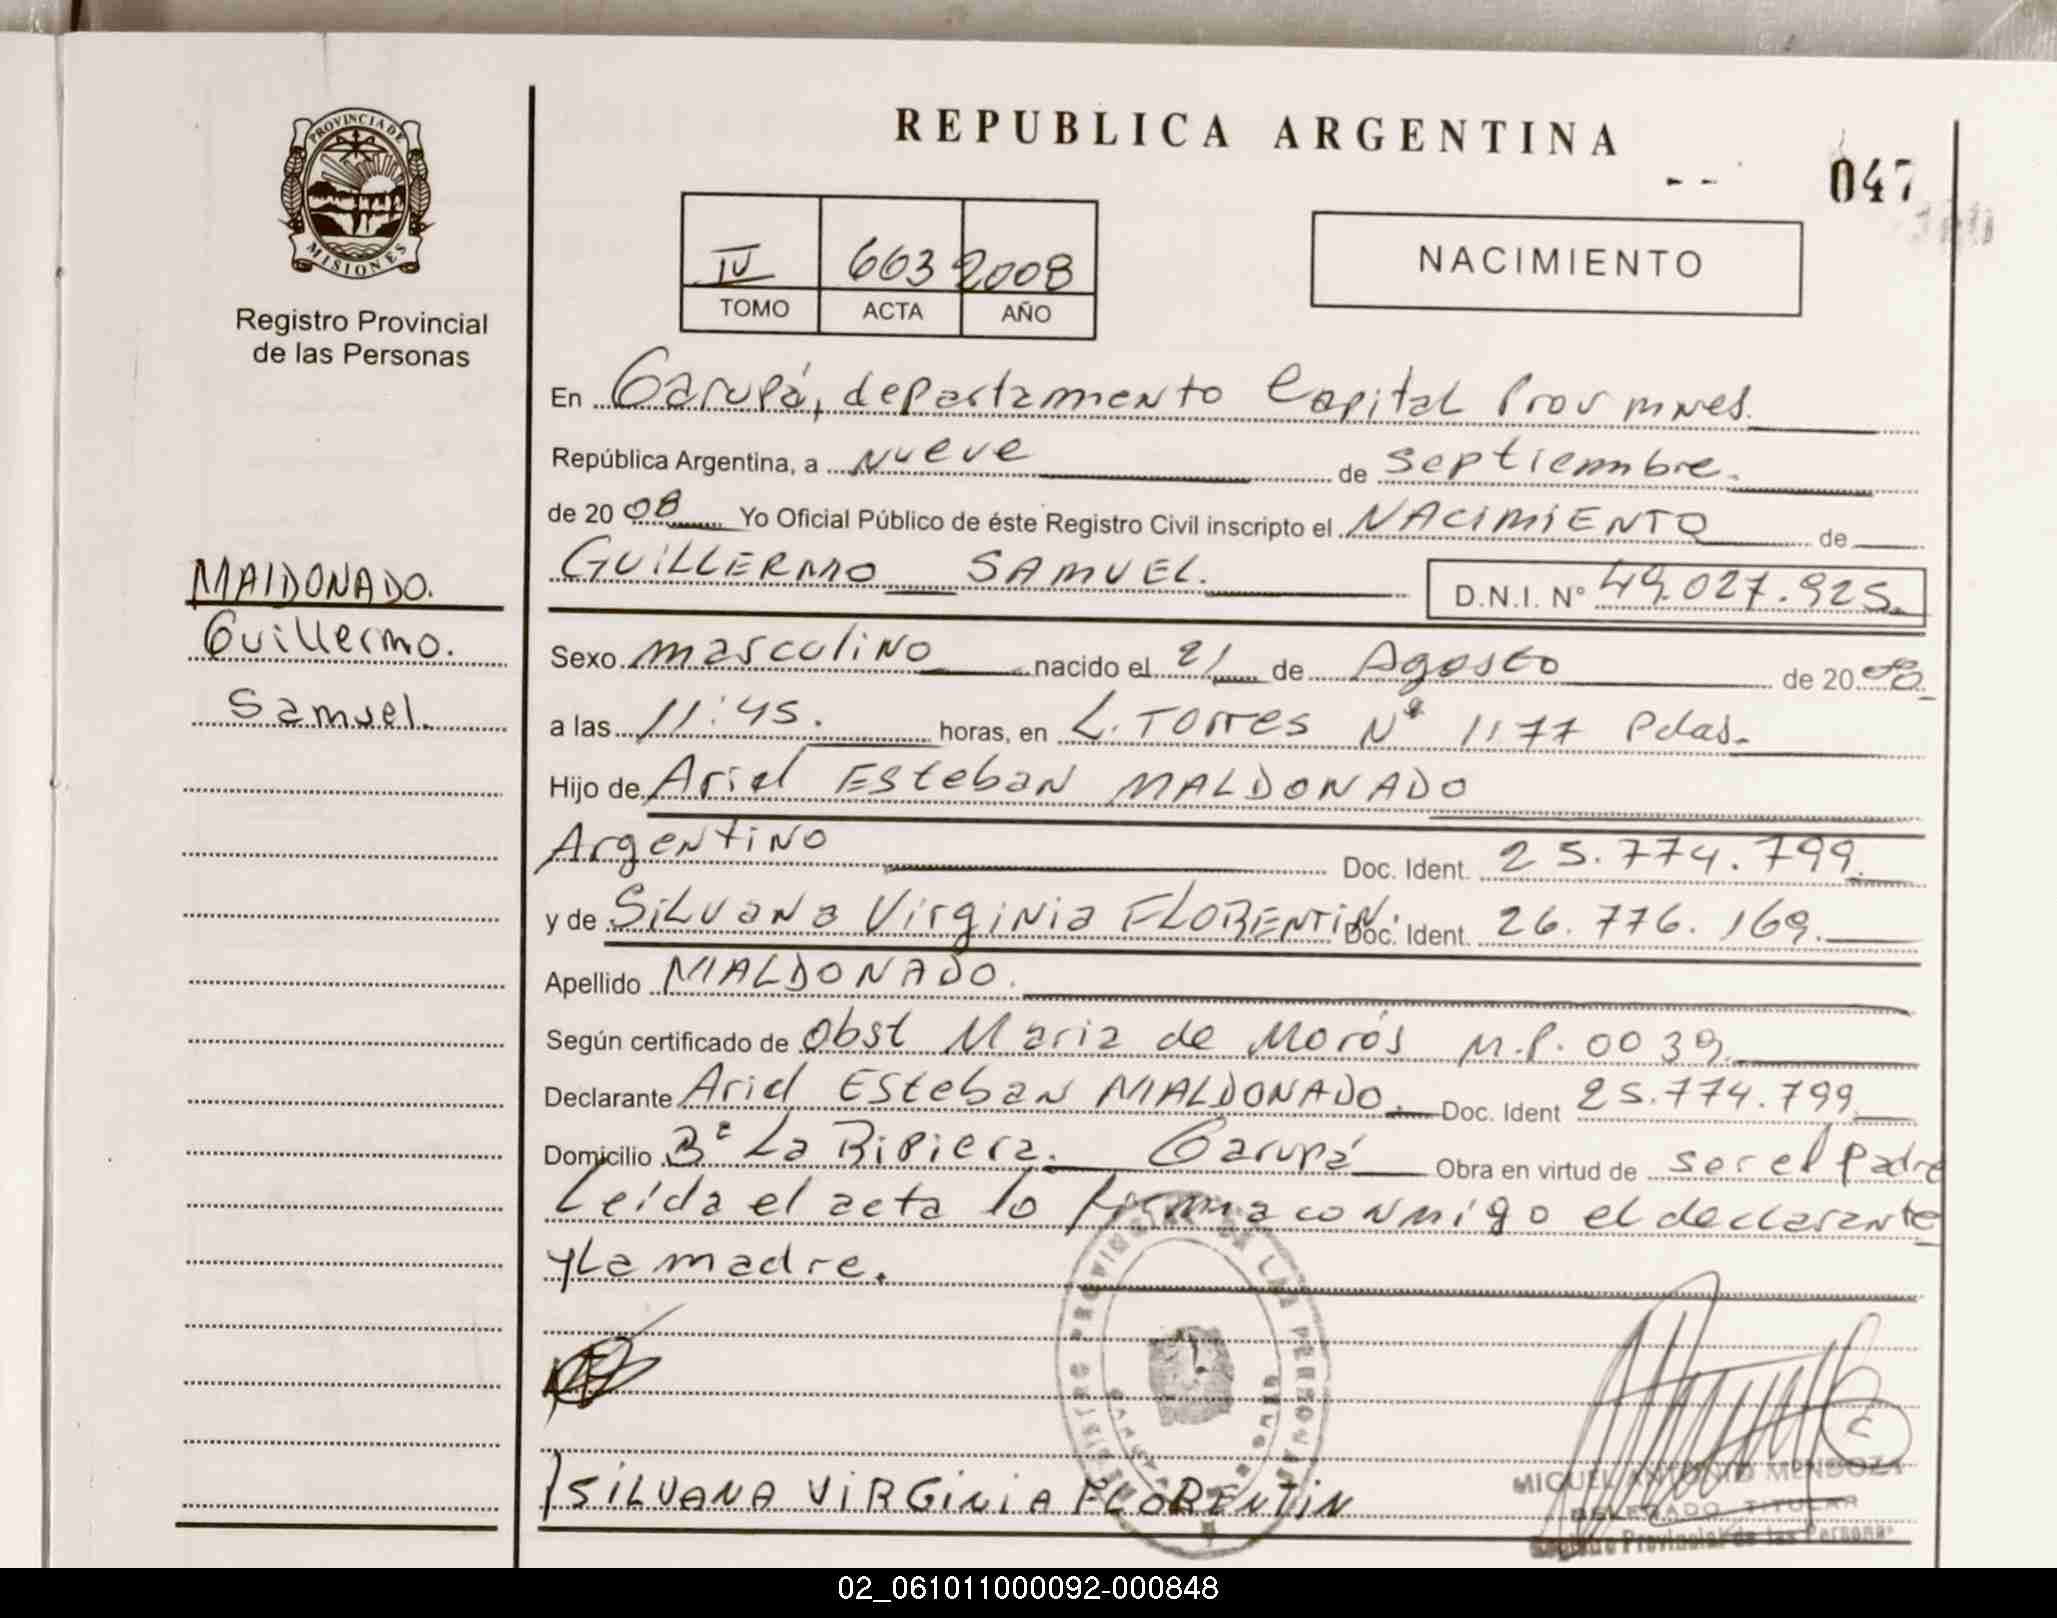 REPUBLICA ARGENTINA
047
PROVINCIA DE MISIONES
Registro Provincial
de las Personas
IV 663 2008
TOMO ACTA AÑO
NACIMIENTO
En Garupá, departamento Capital Prov mnes.
República Argentina, a nueve de septiembre.
de 2008 Yo Oficial Público de éste Registro Civil inscripto el NACIMIENTO de
GUILLERMO SAMUEL. D.N.I. N° 49.027.925.
MALDONADO.
Guillermo.
Samuel.
Sexo masculino nacido el 21 de Agosto de 2008
a las 11:45. horas, en L. Torres N° 1177 Pdas.
Hijo de Ariel Esteban MALDONADO
Argentino Doc. Ident. 25.774.799.
y de Silvana Virginia FLORENTIN. Doc. Ident. 26.776.169.
Apellido MALDONADO.
Según certificado de Obst Maria de Morós M.P. 0039.
Declarante Ariel Esteban MALDONADO. Doc. Ident 25.774.799
Domicilio B° La Ribiera. Garupá Obra en virtud de ser el padre
Leida el acta lo firma conmigo el declarante
y La madre.
SILVANA VIRGINIA FLORENTIN
MIGUEL ANTONIO MENDOZA
DELEGADO TITULAR
Registro Provincial de las Personas
02_061011000092-000848